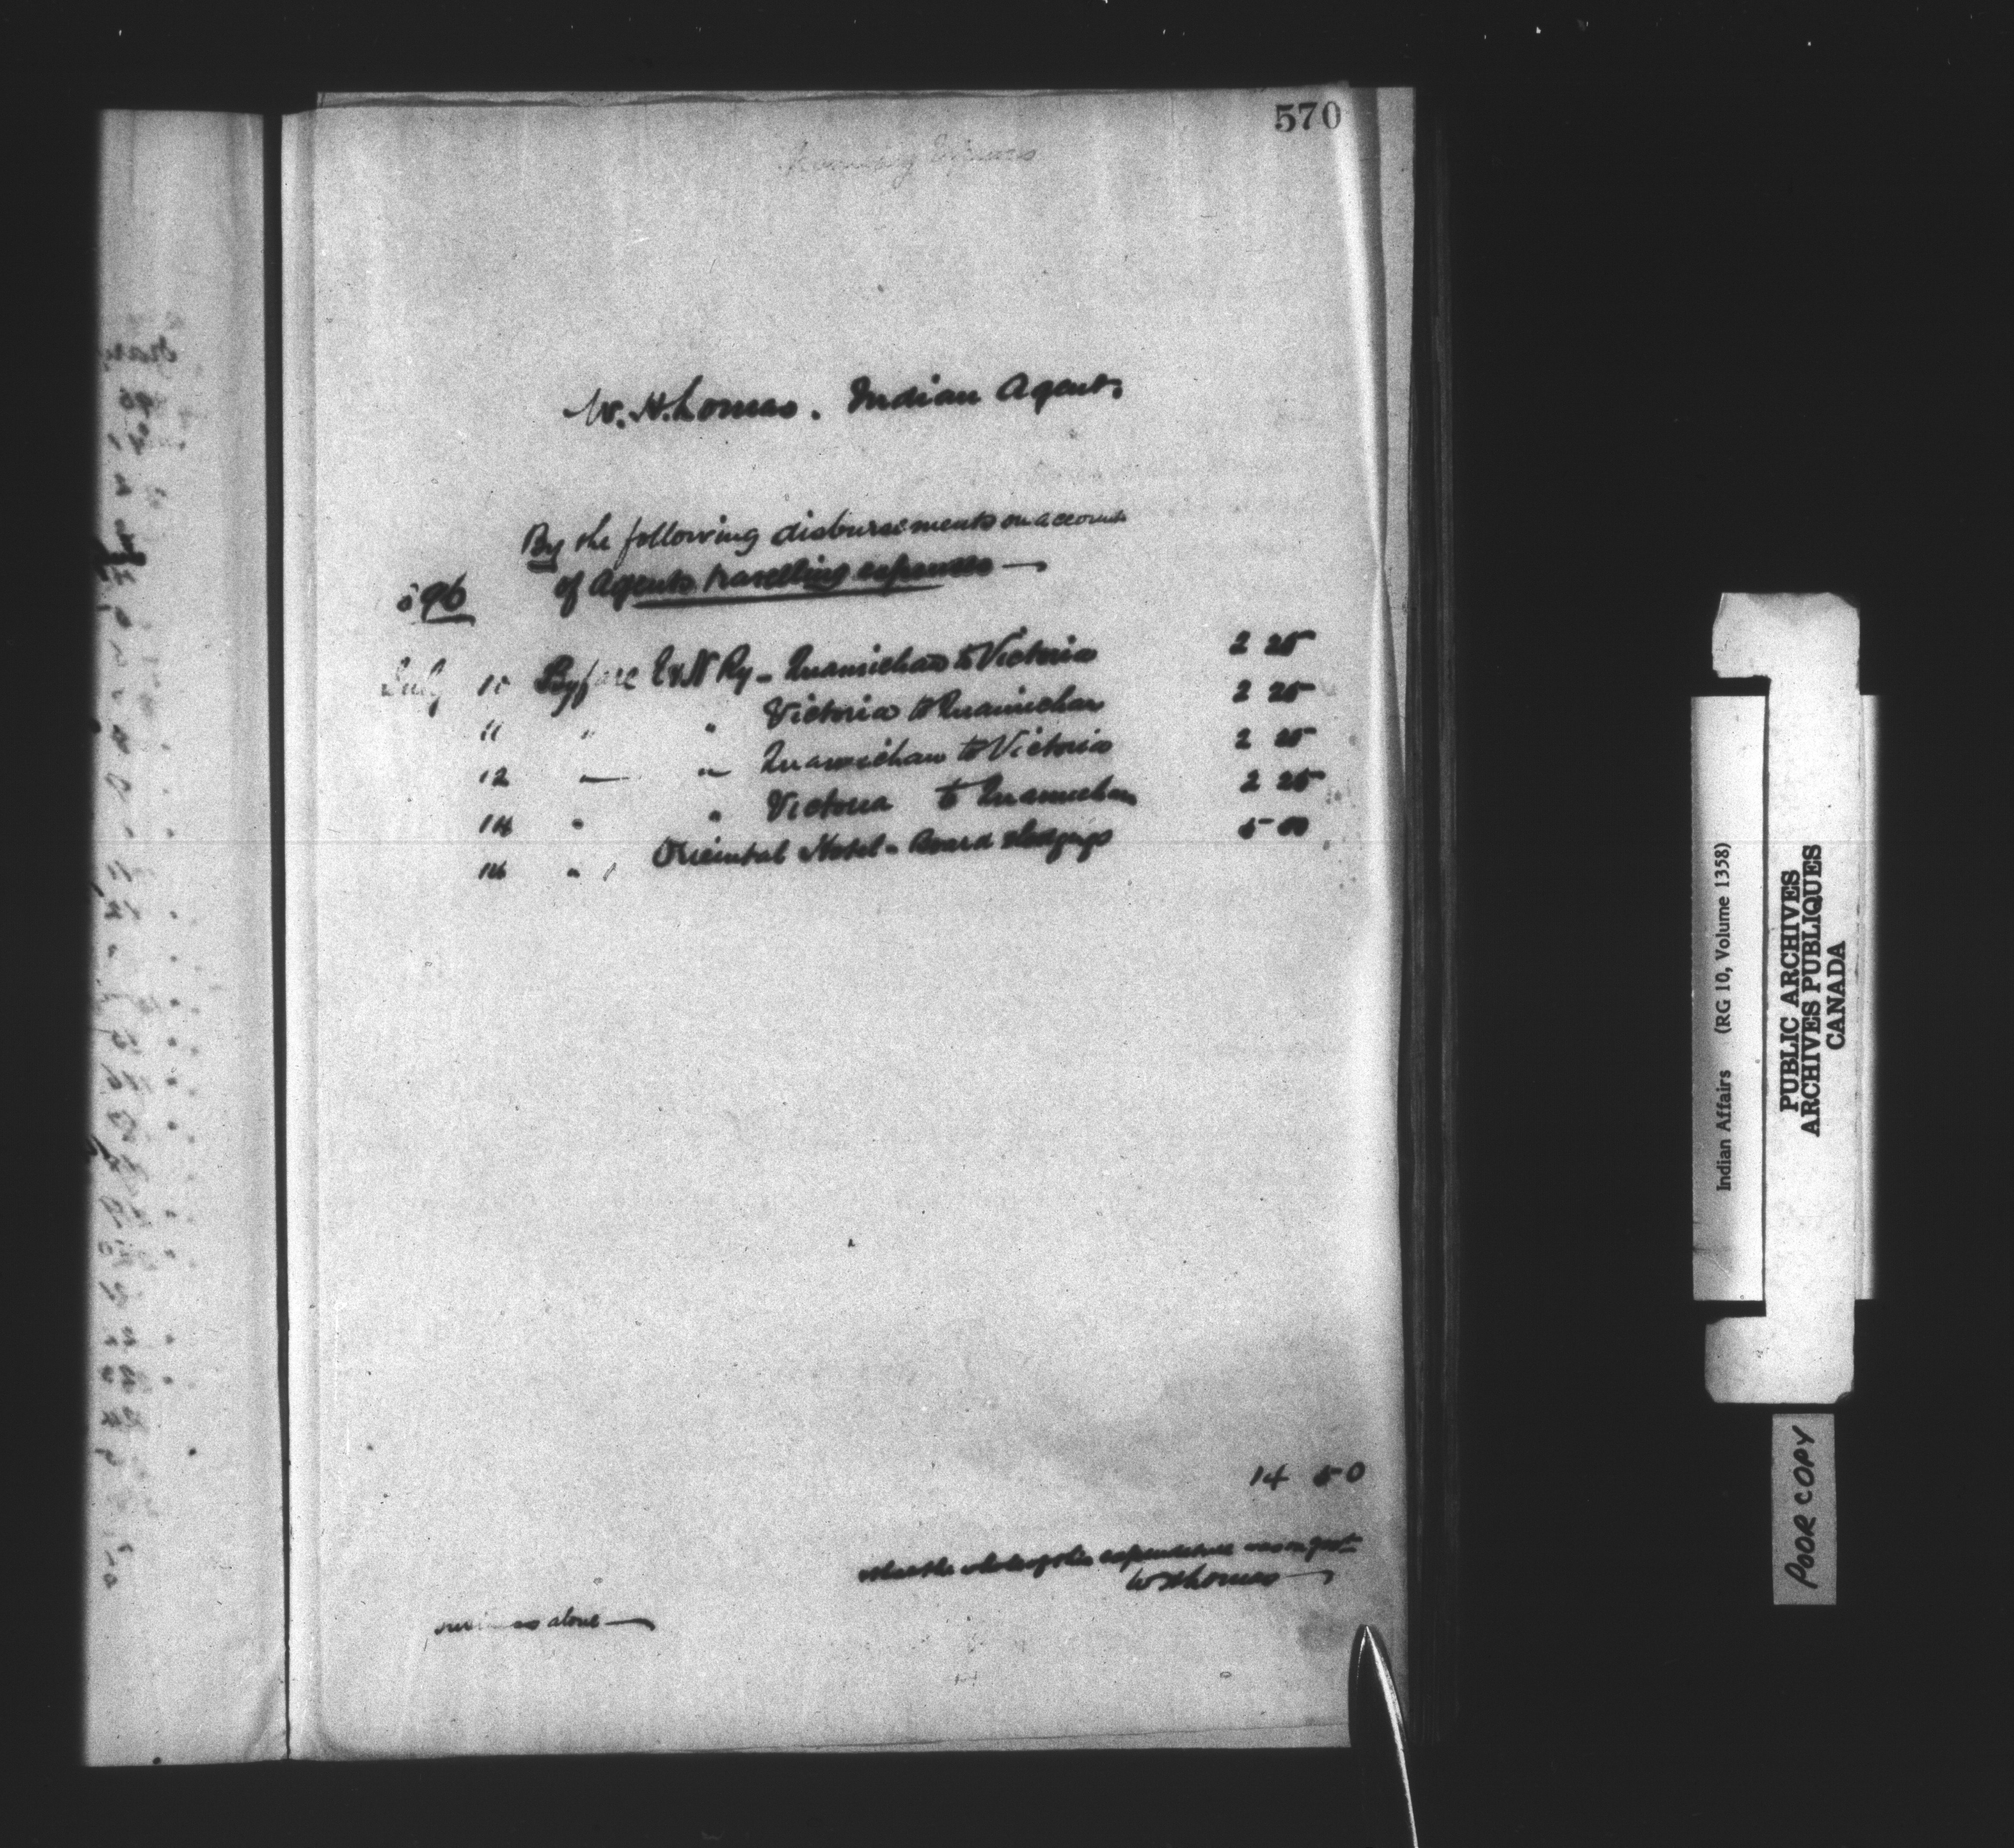 570
Travelling Expenses
W. H. Lomas. Indian Agent.
By the following disbursements on account
of Agents travelling expenses —
'96
July 10 By fare E&N Ry - Quamichan to Victoria 2 25
11 " " Victoria to Quamichan 2 25
12 — " Quamichan to Victoria 2 25
14 " " Victoria to Quamichan 2 25
14 " " Oriental Hotel - Board & Lodgings 5 50
14 50
that the whole of this expenditure was on Govt
W H Lomas
business alone —
Indian Affairs (RG 10, Volume 1358)
PUBLIC ARCHIVES
ARCHIVES PUBLIQUES
CANADA
POOR COPY